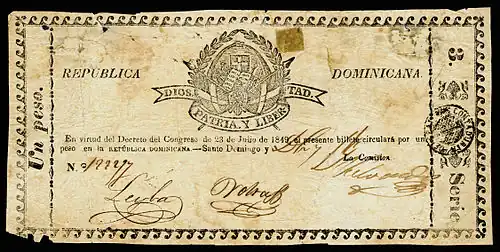 REPUBLICA DOMINICANA.
DIOS. TAD.
PATRIA. Y LIBER
Un peso.
En virtud del Decreto del Congreso de 23 de Julio de 1849, el presente billete circulará por un
peso en la REPÚBLICA DOMINICANA.—Santo Domingo y
La Comision
N.º
Serie
3